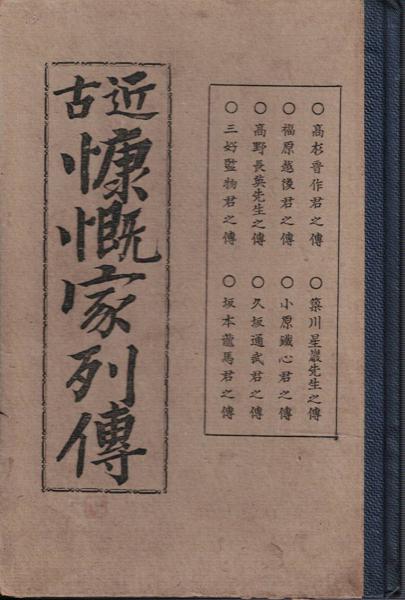 ○高杉晋作君之傳 ○簗川星巖先生之傳
○福原越後君之傳 ○小原鐵心君之傳
○高野長英先生之傳 ○久坂通武君之傳
○三好監物君之傳 ○坂本龍馬君之傳
近古
慷慨家列傳